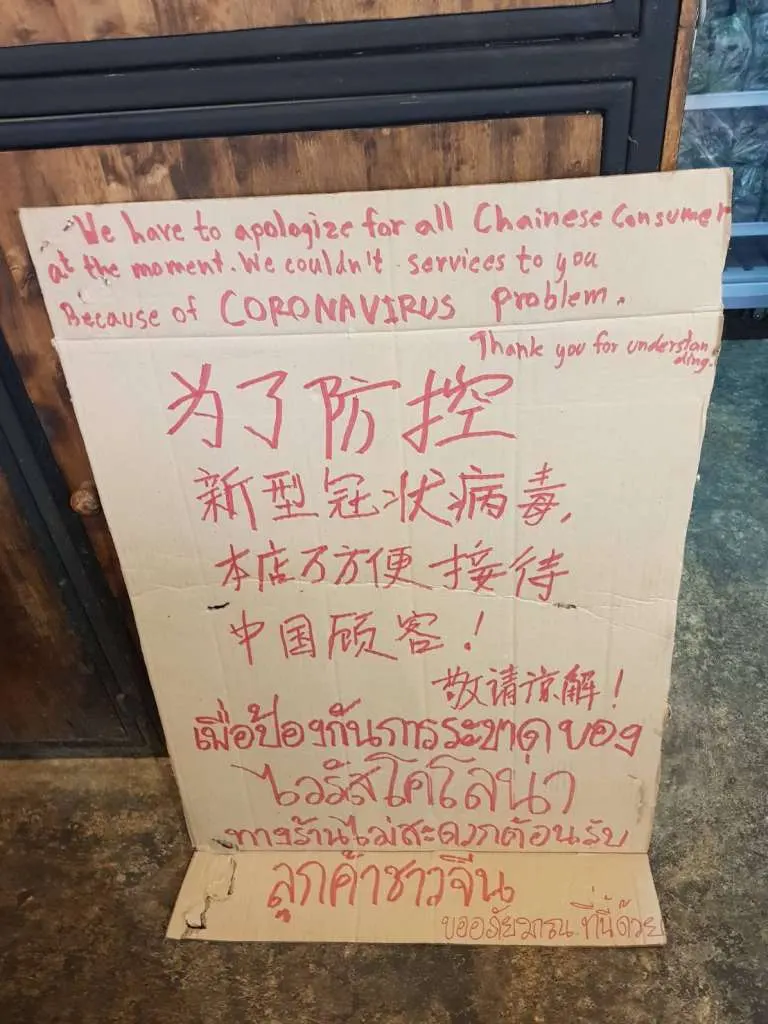 We have to apologize for all Chainese Consumer
at the moment. We couldn't services to you
Because of CORONAVIRUS problem.
Thank you for understan
ding.
为了防控
新型冠状病毒,
本店不方便接待
中国顾客!
敬请谅解!
เพื่อป้องกันการระบาดของ
ไวรัสโคโลน่า
ทางร้านไม่สะดวกต้อนรับ
ลูกค้าชาวจีน
ขออภัยมาณ ที่นี้ด้วย